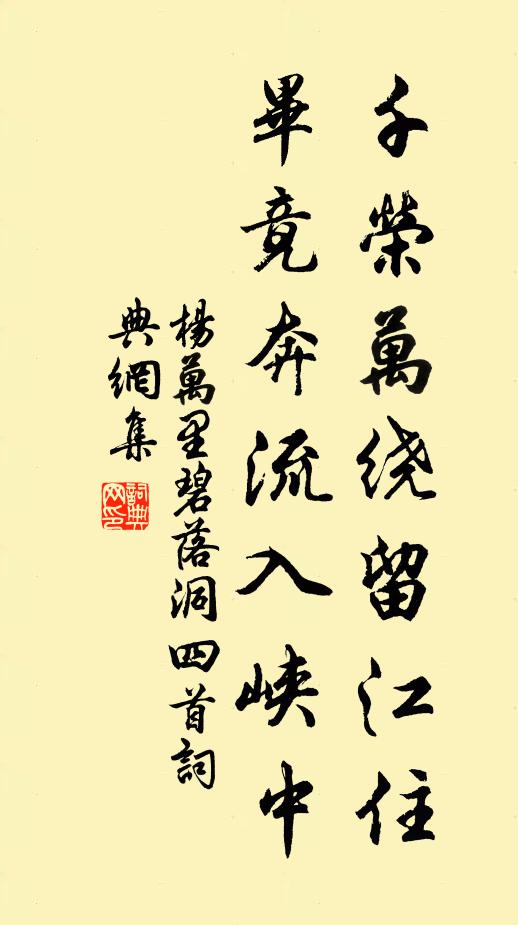 千縈萬绕留江住
畢竟奔流入峽中
楊萬里碧落洞四首詞
典網集
詞典
网印